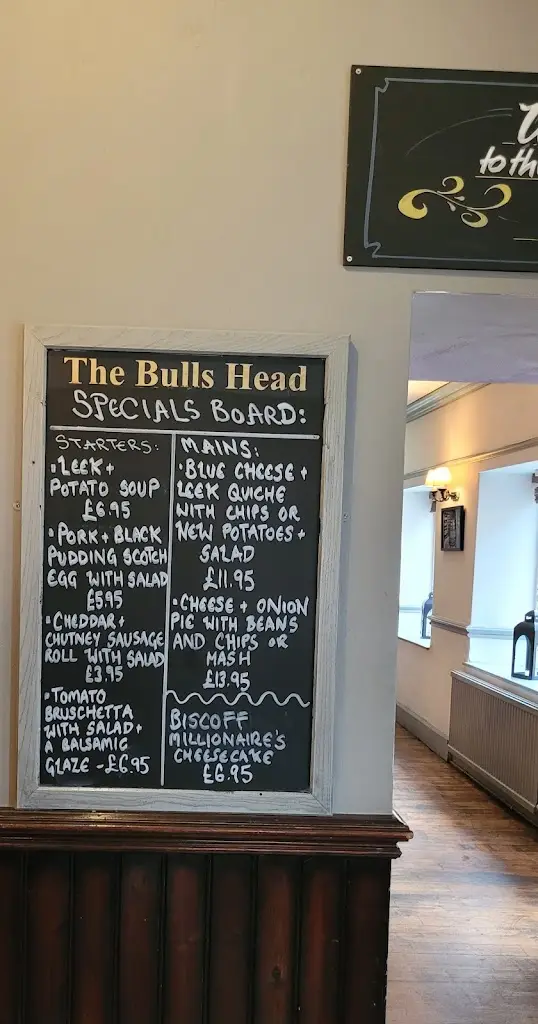 to th
The Bulls Head
SPECIALS BOARD:
STARTERS:
• LEEK +
POTATO SOUP
£6.95
• PORK + BLACK
PUDDING SCOTCH
EGG WITH SALAD
£5.95
• CHEDDAR +
CHUTNEY SAUSAGE
ROLL WITH SALAD
£3.95
• TOMATO
BRUSCHETTA
WITH SALAD +
A BALSAMIC
GLAZE - £6.95
MAINS:
• BLUE CHEESE +
LEEK QUICHE
WITH CHIPS OR
NEW POTATOES +
SALAD
£11.95
• CHEESE + ONION
PIE WITH BEANS
AND CHIPS OR
MASH
£13.95
BISCOFF
MILLIONAIRE'S
CHEESECAKE
£6.95